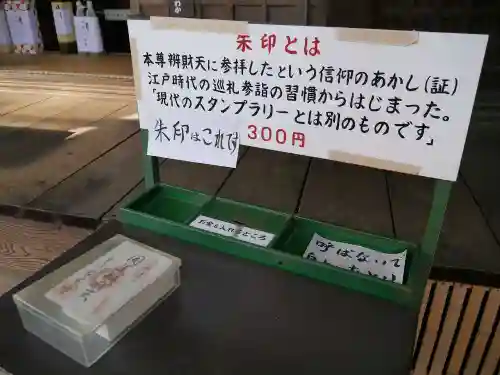 朱印とは
本尊辨財天に参拝したという信仰のあかし(証)
江戸時代の巡礼参詣の習慣からはじまった。
「現代のスタンプラリーとは別のものです」
朱印はこれです
300円
お金を入れるところ
呼ばないで